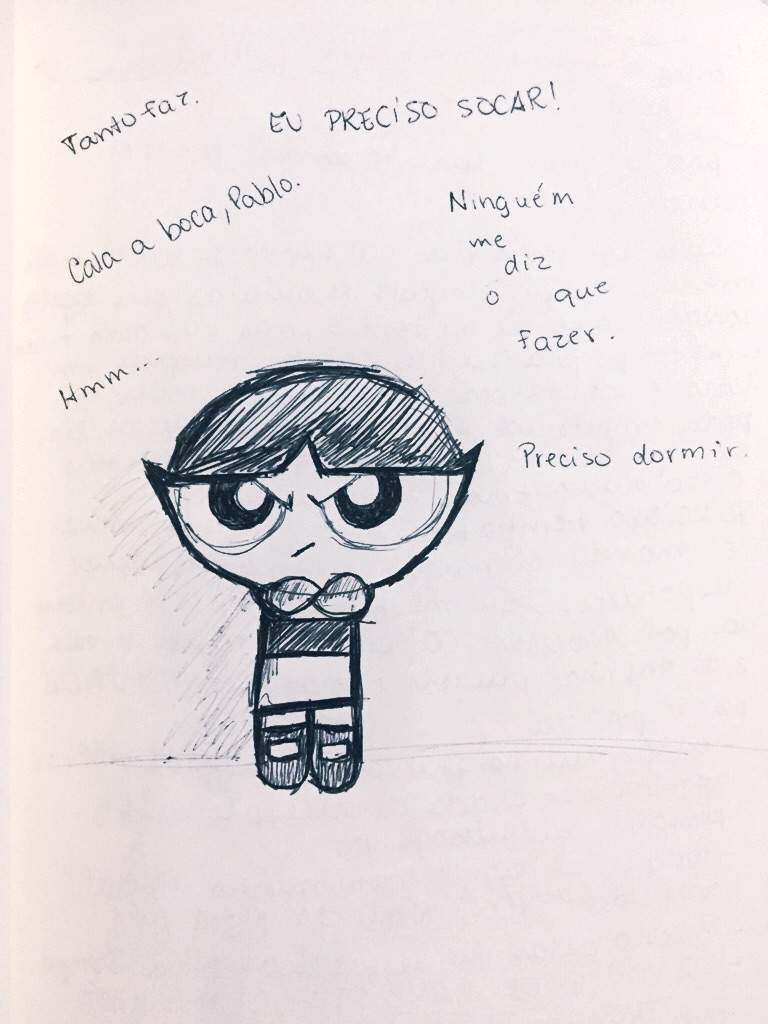 Tanto faz.
EU PRECISO SOCAR!
Cala a boca, Pablo.
Ninguém
me
diz
o que
fazer.
Hmm...
Preciso dormir.